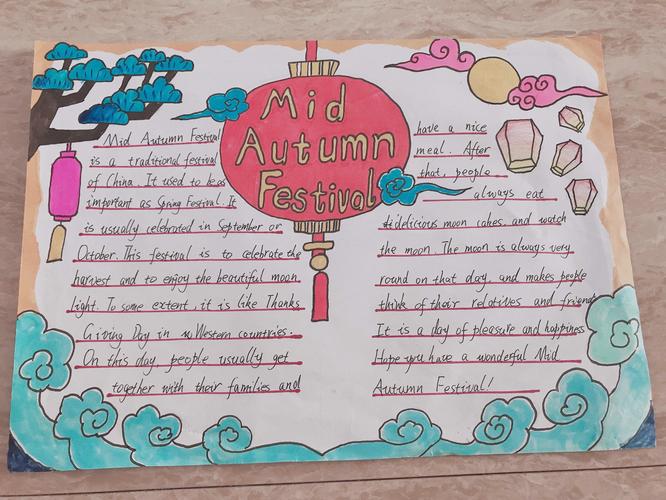 Mid
Autumn
Festival
Mid Autumn Festival
is a traditional festival
of China. It used to be as
important as Spring Festival. It
is usually celebrated in September or
October. This festival is to celebrate the
harvest and to enjoy the beautiful moon
light. To some extent, it is like Thanks
Giving Day in Western countries.
On this day, people usually get
together with their families and
have a nice
meal. After
that, people
always eat
delicious moon cakes, and watch
the moon. The moon is always very
round on that day, and makes people
think of their relatives and friends
It is a day of pleasure and happiness
Hope you have a wonderful Mid
Autumn Festival!